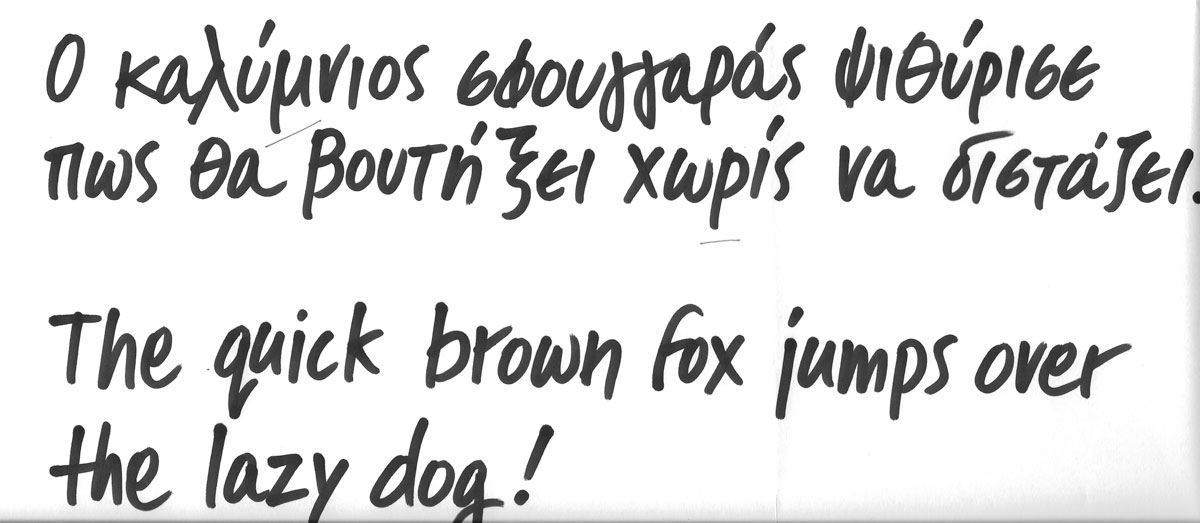 Ο καλύμνιος σφουγγαράς ψιθύρισε
πως θα βουτήξει χωρίς να διστάζει.
The quick brown fox jumps over
the lazy dog!